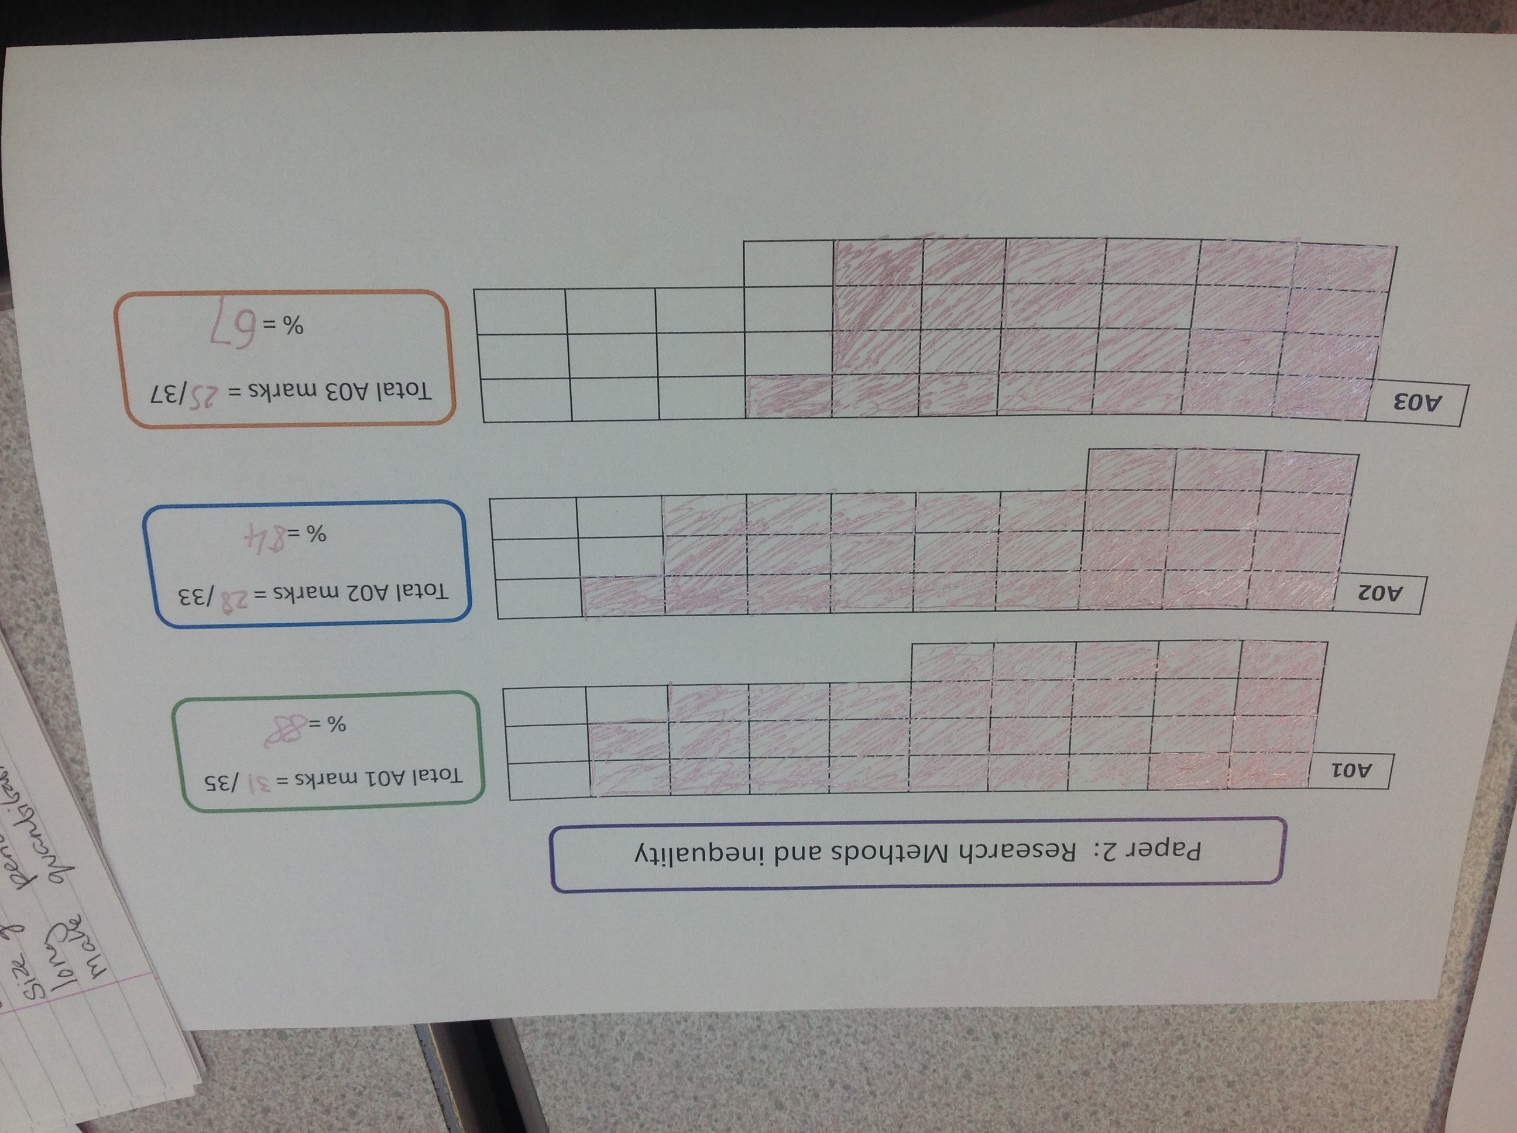 Paper 2: Research Methods and inequality
A01
Total A01 marks = 31 /35
% = 88
A02
Total A02 marks = 28 /33
% = 84
A03
Total A03 marks = 25/37
% = 67
Size of
long
male